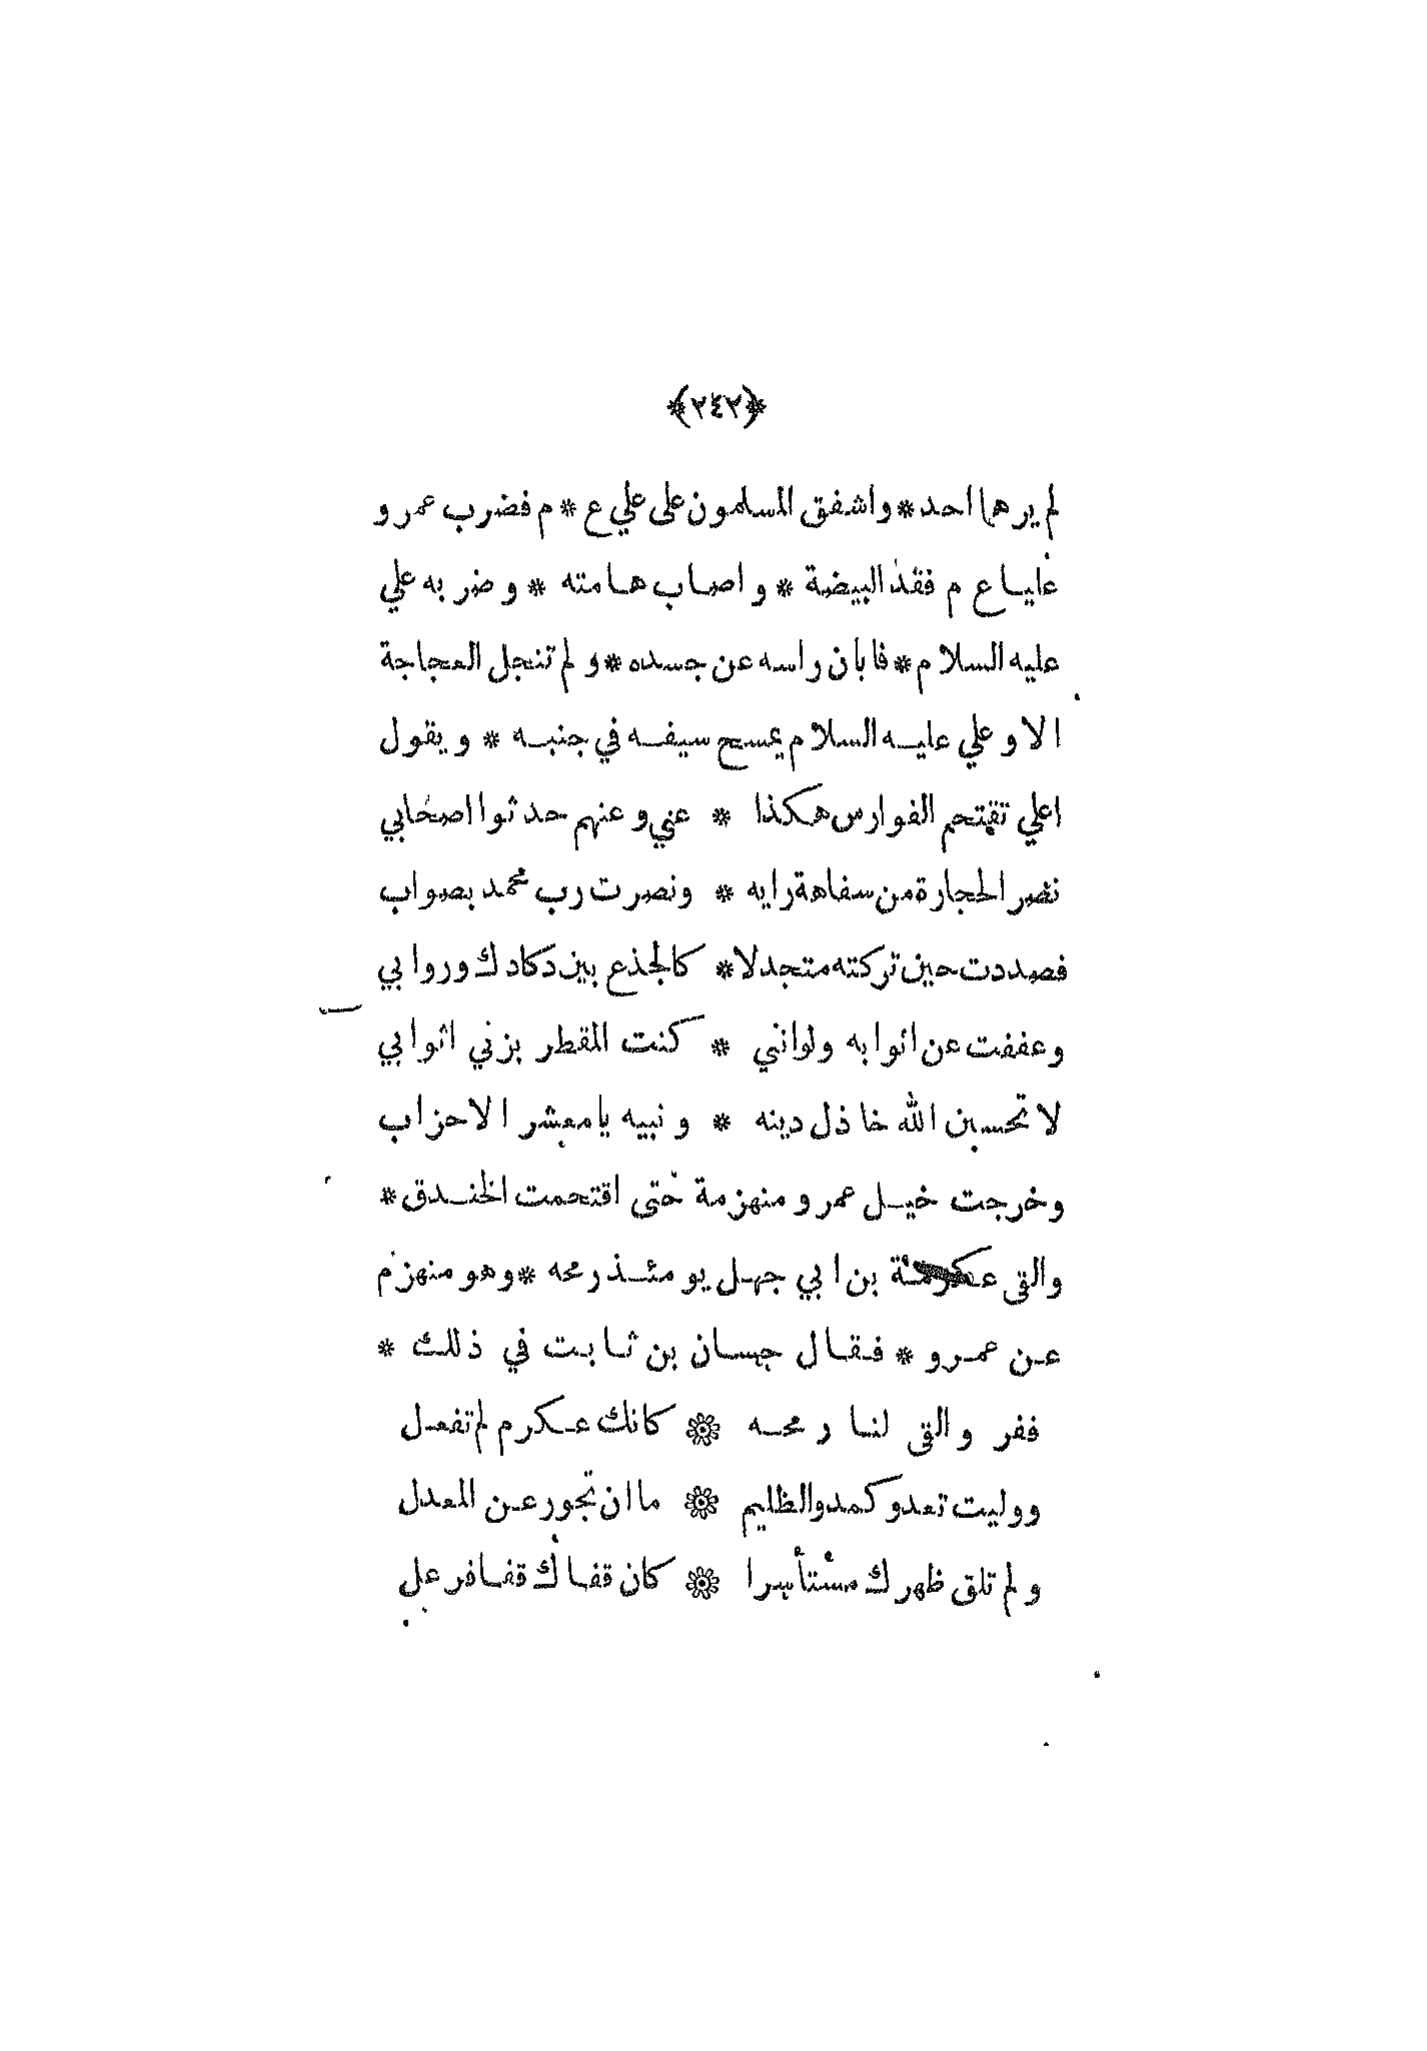 ﴿٢٤٢﴾
لم يرهما احد * واشفق المسلمون على علي ع * م فضرب عمرو
عليا ع م فقد البيضة * واصاب هامته * وضربه علي
عليه السلام * فابان راسه عن جسده * ولم تنجل العجاجة
الا وعلي عليه السلام يمسح سيفه في جنبه * ويقول
اعلي تقتحم الفوارس هكذا * عني وعنهم حدثوا اصحابي
نصر الحجارة من سفاهة رايه * ونصرت رب محمد بصواب
فصددت حين تركته متجدلا * كالجذع بين دكادك وروابي
وعففت عن اثوابه ولوانني * كنت المقطر بزني اثوابي
لا تحسبن الله خاذل دينه * ونبيه يا معشر الاحزاب
وخرجت خيل عمرو منهزمة حتى اقتحمت الخندق *
والقى عكرمة بن ابي جهل يومئذ رمحه * وهو منهزم
عن عمرو * فقال حسان بن ثابت في ذلك *
ففر والقى لنا رمحه * كانك عكرم لم تفعل
ووليت تعدو كعدو الظليم * ما ان تجور عن المعدل
ولم تلق ظهرك مستأسرا * كان قفاك قفا فرعل